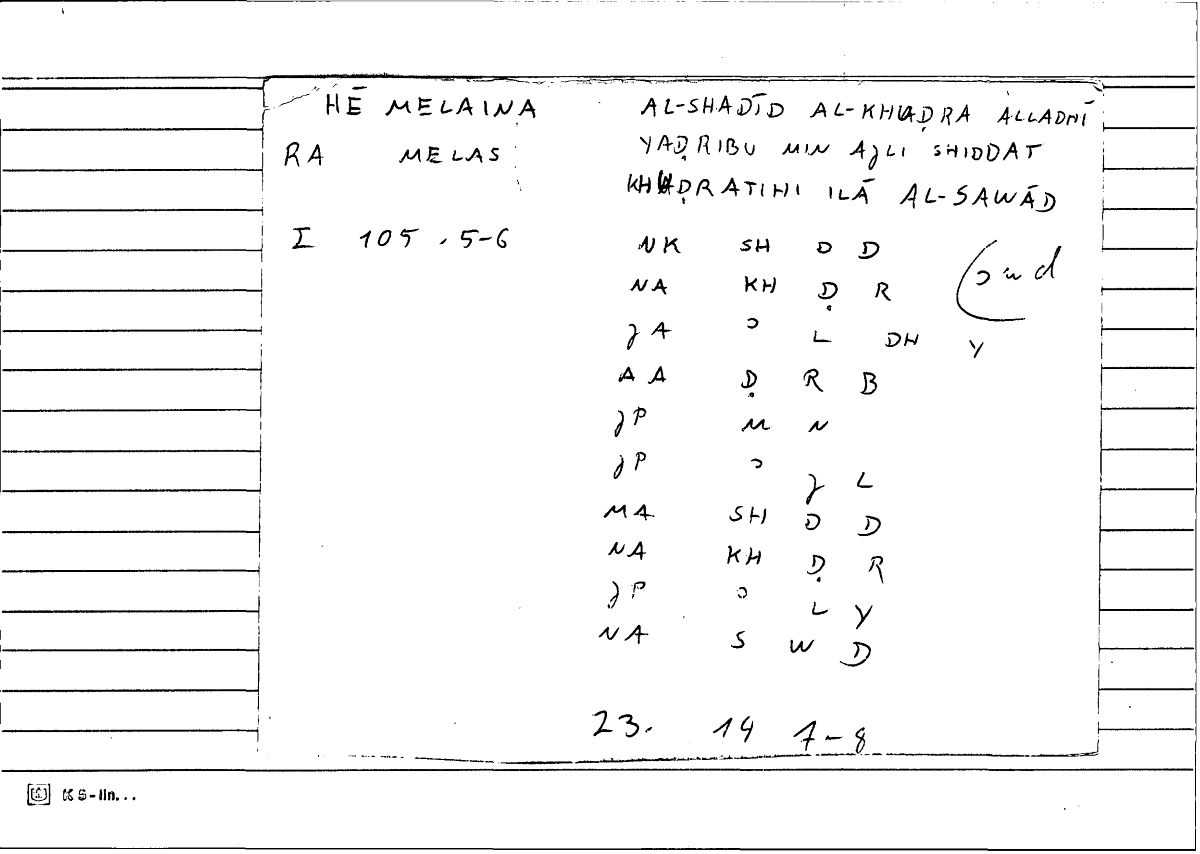 HĒ MELAINA
RA MELAS
I 105 . 5-6
AL-SHADĪD AL-KHUḌRA ALLADHĪ
YAḌRIBU MIN AJLI SHIDDAT
KHUḌRATIHI ILĀ AL-SAWĀD
NK SH D D
NA KH Ḍ R
JA ʾ L DH Y
AA Ḍ R B
JP M N
JP ʾ J L
MA SH D D
NA KH Ḍ R
JP ʾ L Y
NA S W D
23. 14 7-8
KS-lin...